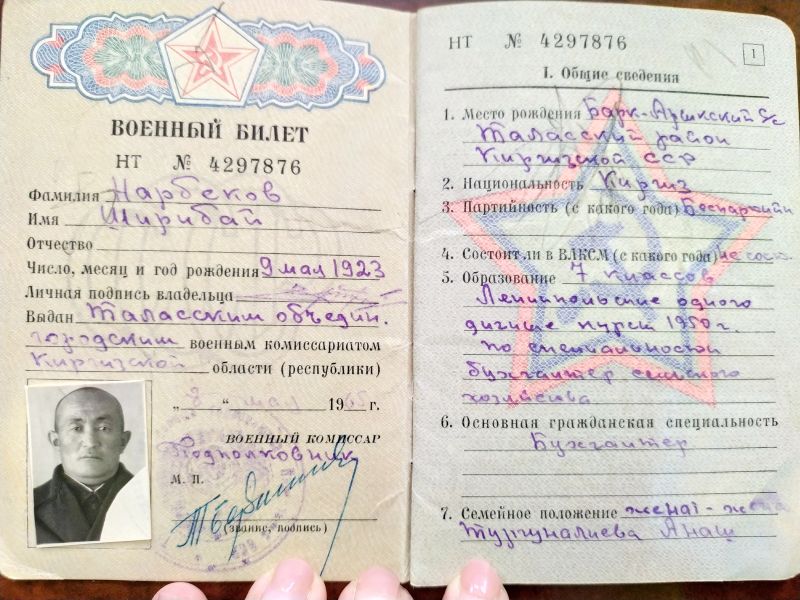 ВОЕННЫЙ БИЛЕТ
НТ № 4297876
Фамилия Нарбеков
Имя Ширибай
Отчество
Число, месяц и год рождения 9 мая 1923
Личная подпись владельца
Выдан Таласским объедин.
городским военным комиссариатом
Киргизской области (республики)
„8“ мая 1965 г.
ВОЕННЫЙ КОМИССАР
Подполковник
М. П.
(звание, подпись)
НТ № 4297876
1
I. Общие сведения
1. Место рождения Барк-Арыкский с/с
Таласский район
Киргизской ССР
2. Национальность Киргиз
3. Партийность (с какого года)
4. Состоит ли в ВЛКСМ (с какого года) не сост.
5. Образование 7 классов
одного
дичные курсы 1950 г.
по специальности
бухгалтер сельского
хозяйства
6. Основная гражданская специальность
Бухгалтер
7. Семейное положение женат - жена
Турчуналиева Анаш